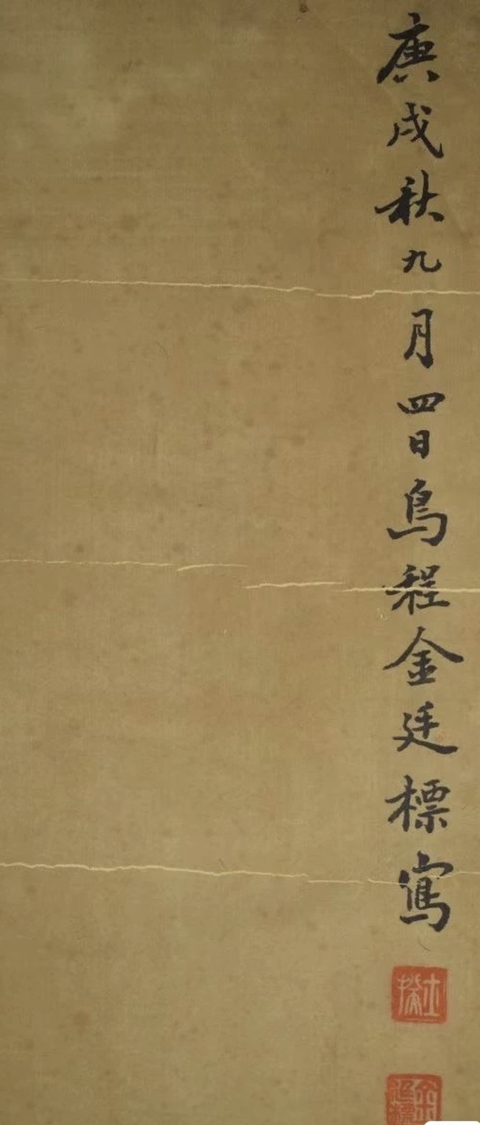 庚戌秋九月四日烏程金廷標寫
士揆